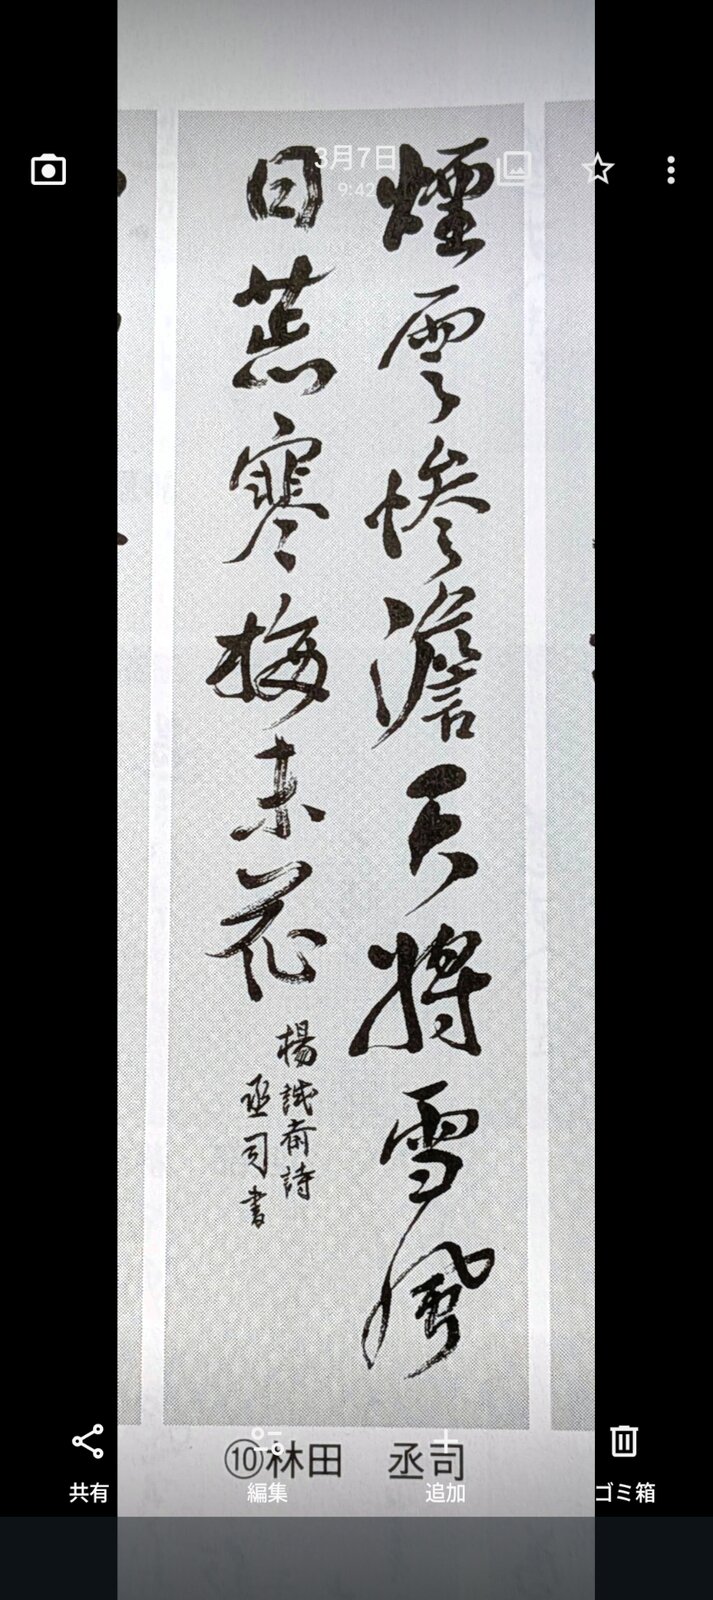 3月7日
9:42
煙雲惨澹天将雪風
日荒寒梅未花
楊誠斎詩
丞司書
⑩林田 丞司
共有
編集
追加
ゴミ箱